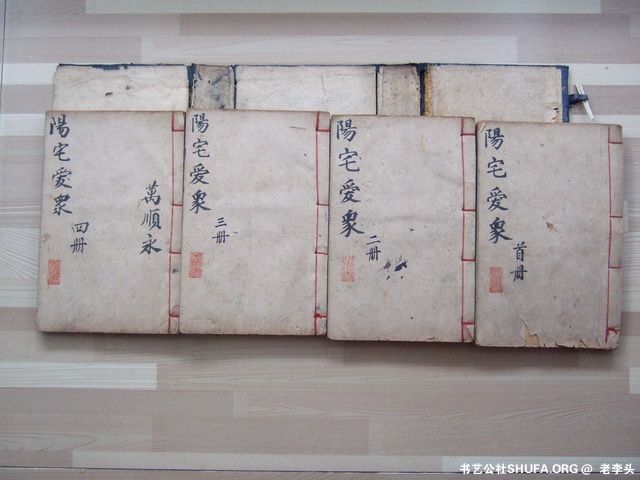 陽宅愛衆
首册
陽宅愛衆
二册
陽宅愛衆
三册
陽宅愛衆
四册
萬順永
书艺公社SHUFA.ORG @ 老李头